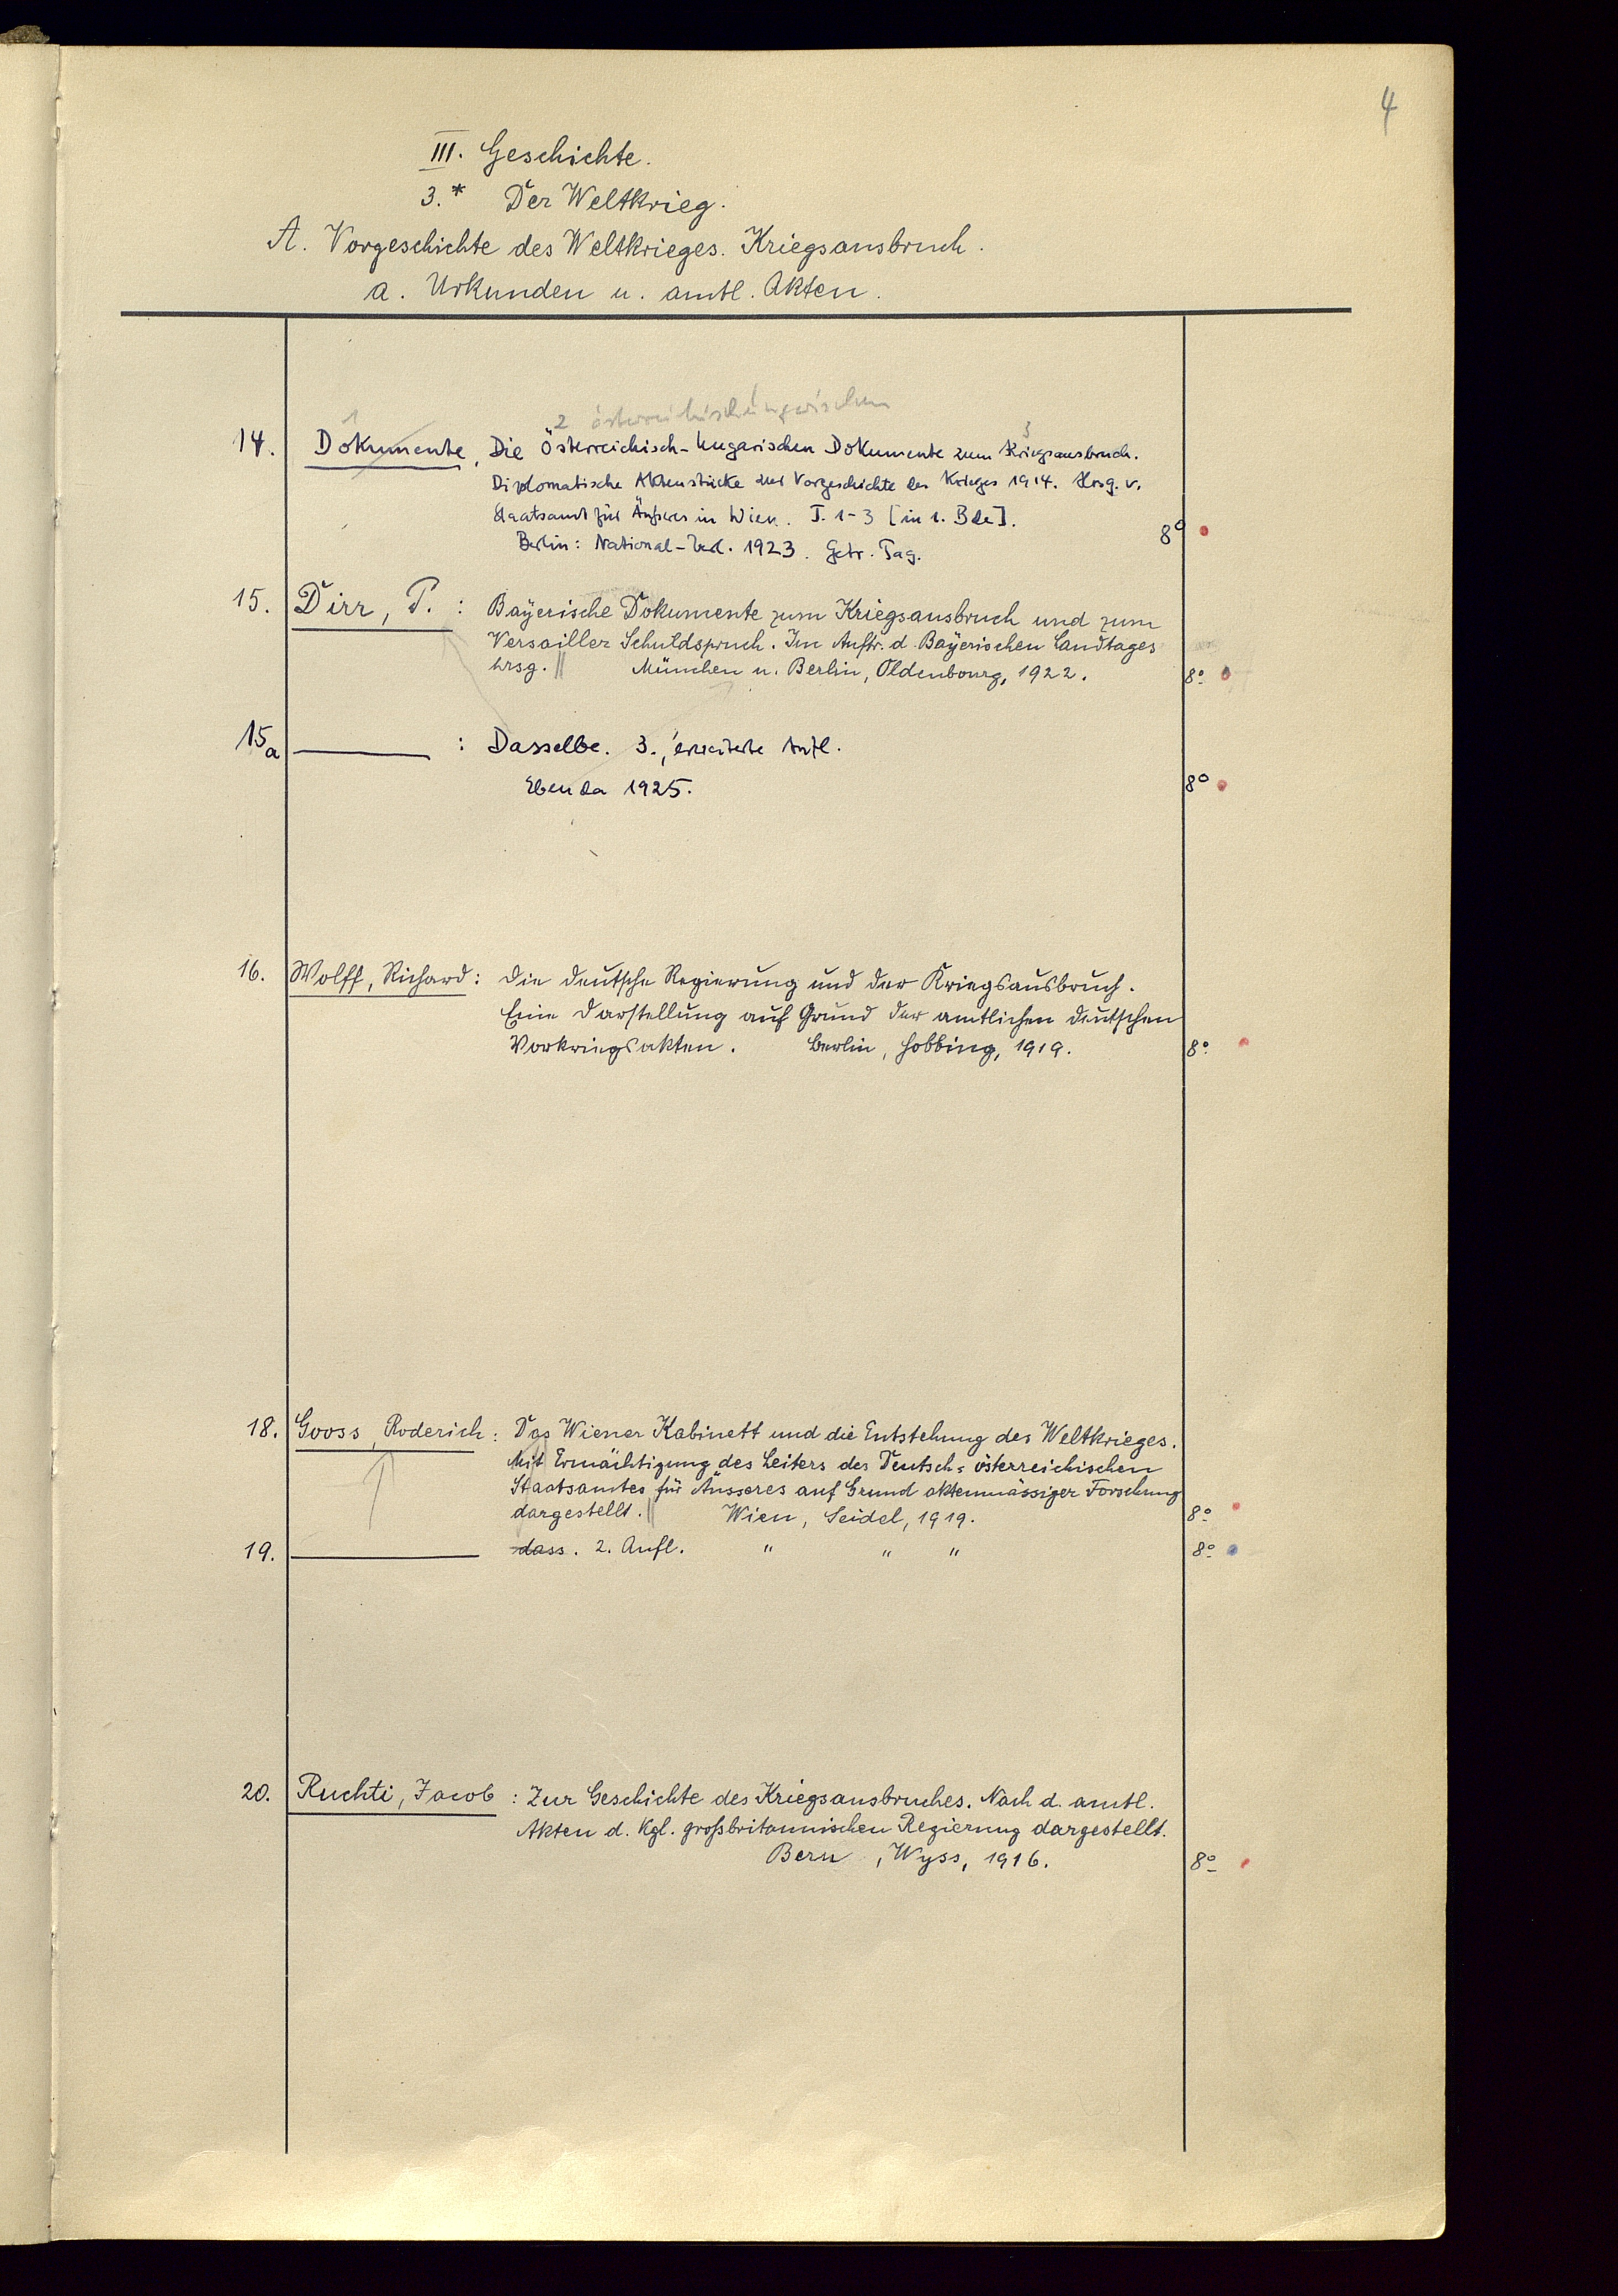 4
III. Geschichte.
3.* Der Weltkrieg.
A. Vorgeschichte des Weltkrieges. Kriegsausbruch.
a. Urkunden u. amtl. Akten.
1 2 österreichisch-ungarischen 3
14. Dokumente, Die Österreichisch-Ungarischen Dokumente zum Kriegsausbruch.
Diplomatische Aktenstücke zur Vorgeschichte des Krieges 1914. Hrsg. v.
Staatsamt für Äußeres in Wien. T. 1-3 [in 1. Bde].
Berlin: National-Verl. 1923. Getr. Pag. 8°
15. Dirr, P.: Bayerische Dokumente zum Kriegsausbruch und zum
Versailler Schuldspruch. Im Auftr. d. Bayerischen Landtages
hrsg. || München u. Berlin, Oldenbourg, 1922. 8°
15a ——— : Dasselbe. 3., erweiterte Aufl.
Ebenda 1925. 8°
16. Wolff, Richard: Die deutsche Regierung und der Kriegsausbruch.
Eine Darstellung auf Grund der amtlichen deutschen
Vorkriegsakten. Berlin, Hobbing, 1919. 8°
18. Gooss, Roderich: Das Wiener Kabinett und die Entstehung des Weltkrieges.
Mit Ermächtigung des Leiters des Deutsch-österreichischen
Staatsamtes für Äusseres auf Grund aktenmässiger Forschung
dargestellt. || Wien, Seidel, 1919. 8°
19. ——— dass. 2. Aufl. " " " 8°
20. Ruchti, Jacob: Zur Geschichte des Kriegsausbruches. Nach d. amtl.
Akten d. Kgl. großbritannischen Regierung dargestellt.
Bern, Wyss, 1916. 8°